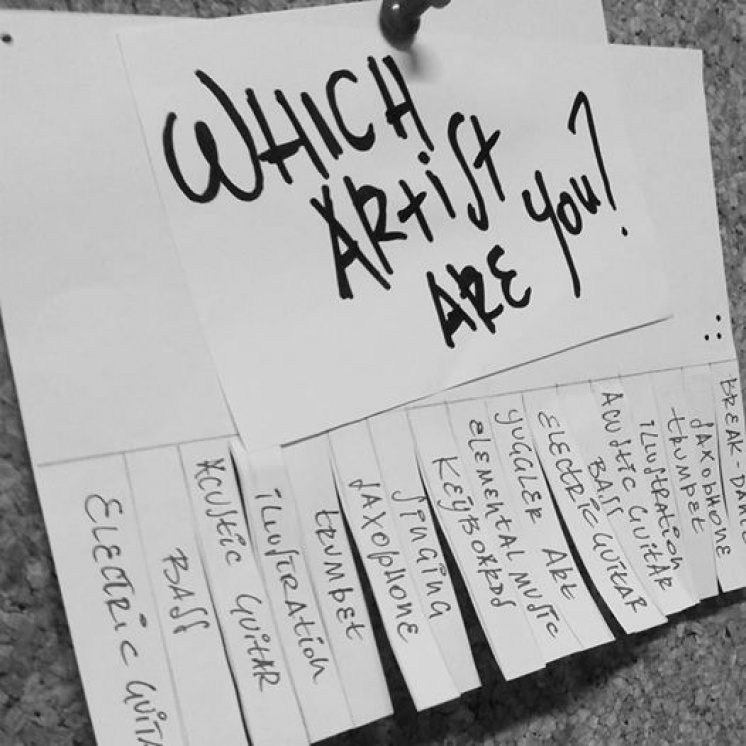 WHICH
ARTIST
ARE YOU?
ELECTRIC GUITA
BASS
ACUSTIC GUITAR
ILLUSTRATION
TRUMPET
SAXOPHONE
SINGING
KEYBOARDS
ELEMENTAL MUSIC
YUGGLER ART
ELECTRIC GUITAR
BASS
ACUSTIC GUITAR
ILLUSTRATION
TRUMPET
SAXOPHONE
BREAK-DANC